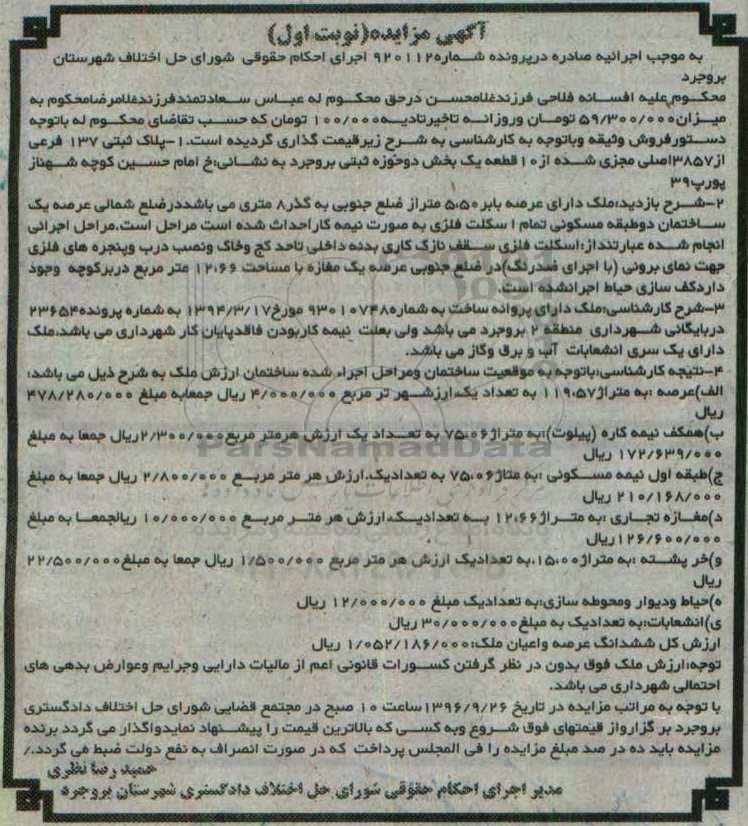 آگهی مزایده(نوبت اول)
به موجب اجرائیه صادره درپرونده شماره۹۲۰۱۱۲ اجرای احکام حقوقی شورای حل اختلاف شهرستان
بروجرد
محکوم علیه افسانه فلاحی فرزندغلامحسن درحق محکوم له عباس سعادتمندفرزندغلامرضامحکوم به
میزان۵۹/۳۰۰/۰۰۰ تومان وروزانه تاخیرتادیه۱۰۰/۰۰۰ تومان که حسب تقاضای محکوم له باتوجه
دستورفروش وثیقه وباتوجه به کارشناسی به شرح زیرقیمت گذاری گردیده است.۱-پلاک ثبتی ۱۳۷ فرعی
از۳۸۵۷اصلی مجزی شده از۱۰قطعه یک بخش دوحوزه ثبتی بروجرد به نشانی:خ امام حسین کوچه شهناز
پورپ۳۹
۲-شرح بازدید:ملک دارای عرصه بابر۵،۵۰ متراز ضلع جنوبی به گذر۸ متری می باشددرضلع شمالی عرصه یک
ساختمان دوطبقه مسکونی تمام ا سکلت فلزی به صورت نیمه کاراحداث شده است مراحل است.مراحل اجرائی
انجام شده عبارتنداز:اسکلت فلزی سقف نازک کاری بدنه داخلی تاحد گچ وخاک ونصب درب وپنجره های فلزی
جهت نمای برونی (با اجرای ضدرنگ)در ضلع جنوبی عرصه یک مغازه با مساحت ۱۲،۶۶ متر مربع دربرکوچه وجود
داردکف سازی حیاط اجرانشده است.
۳-شرح کارشناسی:ملک دارای پروانه ساخت به شماره۹۳۰۱۰۷۴۸ مورخ۱۳۹۴/۳/۱۷ به شماره پرونده۲۳۶۵۴
دربایگانی شهرداری منطقه ۲ بروجرد می باشد ولی بعلت نیمه کاربودن فاقدپایان کار شهرداری می باشد.ملک
دارای یک سری انشعابات آب و برق وگاز می باشد.
۴-نتیجه کارشناسی:باتوجه به موقعیت ساختمان ومراحل اجراء شده ساختمان ارزش ملک به شرح ذیل می باشد:
الف)عرصه :به متراژ۱۱۹،۵۷ به تعداد یک.ارزشهر تر مربع ۴/۰۰۰/۰۰۰ ریال جمعابه مبلغ ۴۷۸/۲۸۰/۰۰۰
ریال
ب)همکف نیمه کاره (پیلوت):به متراژ۷۵،۰۶ به تعداد یک ارزش هرمتر مربع۲/۳۰۰/۰۰۰ریال جمعا به مبلغ
۱۷۲/۶۳۹/۰۰۰ ریال
ج)طبقه اول نیمه مسکونی :به متاژ۷۵،۰۶ به تعدادیک.ارزش هر متر مربع ۲/۸۰۰/۰۰۰ ریال جمعا به مبلغ
۲۱۰/۱۶۸/۰۰۰ ریال
د)مغازه تجاری :به متراژ۱۲،۶۶ به تعدادیک.ارزش هر متر مربع ۱۰/۰۰۰/۰۰۰ ریالجمعا به مبلغ
۱۲۶/۶۰۰/۰۰۰ریال
و)خر پشته :به متراژ۱۵،۰۰.به تعدادیک ارزش هر متر مربع ۱/۵۰۰/۰۰۰ ریال جمعا به مبلغ۲۲/۵۰۰/۰۰۰
ریال
ه)حیاط ودیوار ومحوطه سازی:به تعدادیک مبلغ ۱۲/۰۰۰/۰۰۰ ریال
ی)انشعابات:به تعدادیک به مبلغ۳۰/۰۰۰/۰۰۰ ریال
ارزش کل ششدانگ عرصه واعیان ملک:۱/۰۵۲/۱۸۶/۰۰۰ ریال
توجه:ارزش ملک فوق بدون در نظر گرفتن کسورات قانونی اعم از مالیات دارایی وجرایم وعوارض بدهی های
احتمالی شهرداری می باشد.
با توجه به مراتب مزایده در تاریخ ۱۳۹۶/۹/۲۶ساعت ۱۰ صبح در مجتمع قضایی شورای حل اختلاف دادگستری
بروجرد بر گزارواز قیمتهای فوق شروع وبه کسی که بالاترین قیمت را پیشنهاد نمایدواگذار می گردد برنده
مزایده باید ده در صد مبلغ مزایده را فی المجلس پرداخت که در صورت انصراف به نفع دولت ضبط می گردد./
حمید رضا نظری
مدیر اجرای احکام حقوقی شورای حل اختلاف دادگستری شهرستان بروجرد
ParsNamadData